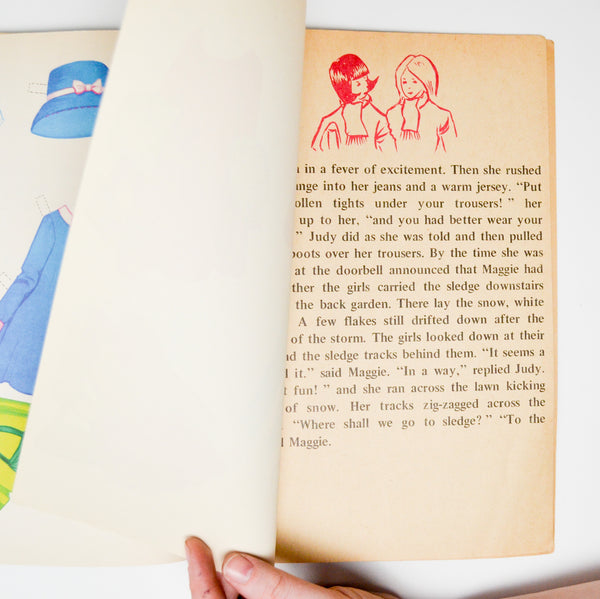 in a fever of excitement. Then she rushed
into her jeans and a warm jersey. “Put
tights under your trousers!” her
up to her, “and you had better wear your
” Judy did as she was told and then pulled
over her trousers. By the time she was
at the doorbell announced that Maggie had
the girls carried the sledge downstairs
the back garden. There lay the snow, white
A few flakes still drifted down after the
of the storm. The girls looked down at their
the sledge tracks behind them. “It seems a
it.” said Maggie. “In a way,” replied Judy.
fun!” and she ran across the lawn kicking
of snow. Her tracks zig-zagged across the
“Where shall we go to sledge?” “To the
Maggie.